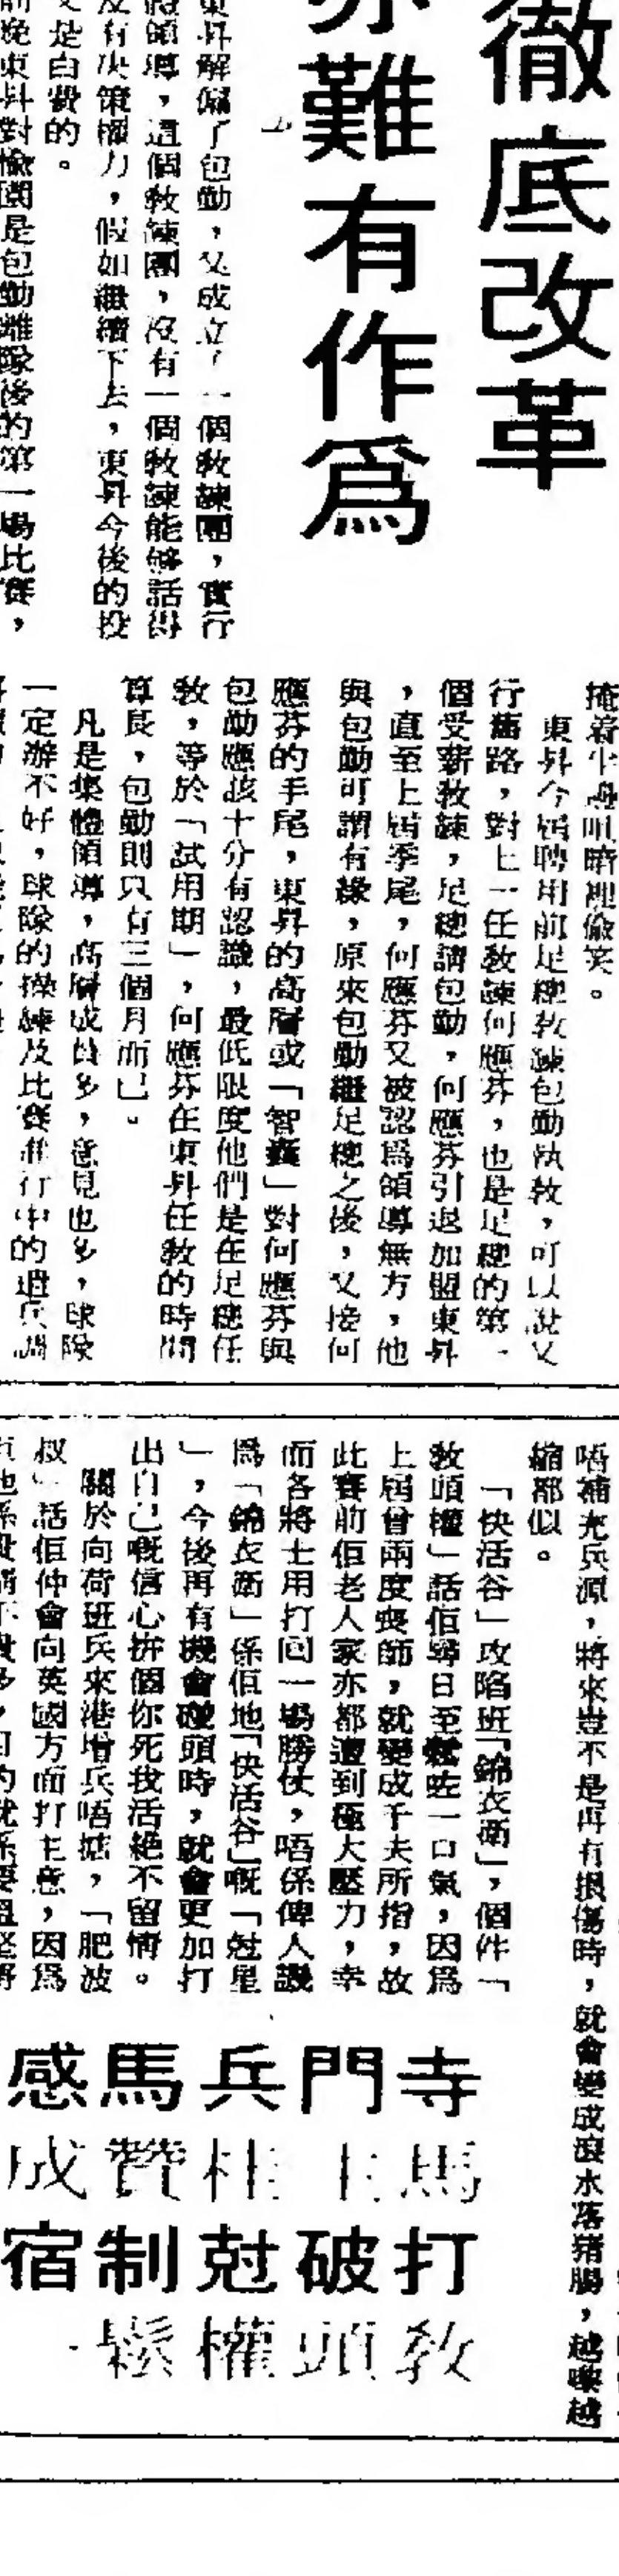 徹底改革
亦難有作爲
東昇解僱了包勤，又成立了一個教練團，實行
領導，這個教練團，沒有一個教練能够話得
有决策權力，假如繼續下去，東昇今後的投
是白費的。
前晚東昇對愉園是包勤離隊後的第一場比賽，
掩着半邊咀暗裡偷笑。
東昇今屆聘用前足總教練包勤執教，可以說又
行舊路，對上一任教練何應芬，也是足總的第一
個受薪教練，足總請包勤，何應芬引退加盟東昇
，直至上屆季尾，何應芬又被認爲領導無方，他
與包勤可謂有緣，原來包勤繼足總之後，又接何
應芬的手尾，東昇的高層或「智囊」對何應芬與
包勤應該十分有認識，最低限度他們是在足總任
教，等於「試用期」，何應芬在東昇任教的時間
算長，包勤則只有三個月而已。
凡是集體領導，高層成員多，意見也多，球隊
一定游不好，球隊的操練及比賽進行中的遣兵調
唔補充兵源，將來豈不是再有損傷時，就會變成滾水淥猪腸，越嚟越
縮都似。
「快活谷」攻陷班「錦衣衛」，個件「
教頭權」話佢尋日至鬆咗一口氣，因爲
上屆曾兩度喪師，就變成千夫所指，故
此賽前佢老人家亦都遭到極大壓力，幸
而各將士用打回一場勝仗，唔係俾人譏
爲「錦衣衛」係佢地「快活谷」嘅「尅星
」，今後再有機會碰頭時，就會更加打
出自己嘅信心拚個你死我活絕不留情。
關於向荷班兵來港增兵唔掂，「肥波
叔」話佢仲會向英國方面打主意，因爲
寺馬打教
門 破頭
兵 尅權
馬贊制鬆
感成宿一